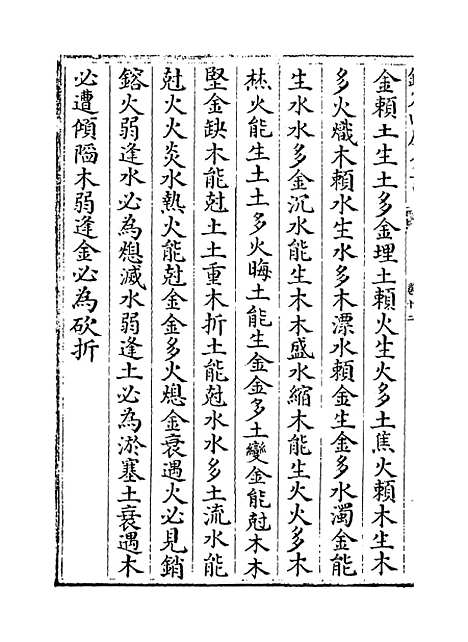 金頼土生土多金埋土頼火生火多土焦火頼木生木
多火熾木頼水生水多木漂水頼金生金多水濁金能
生水水多金沉水能生木木盛水縮木能生火火多木
焚火能生土土多火晦土能生金金多土變金能尅木木
堅金缺木能尅土土重木折土能尅水水多土流水能
尅火火炎水熱火能尅金金多火熄金衰遇火必見銷
鎔火弱逢水必為熄滅水弱逢土必為淤塞土衰遇木
必遭傾陷木弱逢金必為砍折